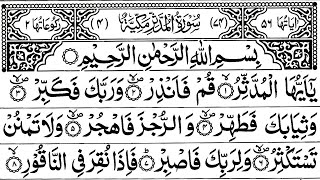 اٰيَاتُهَا ٥٦ (٧٤) سُوْرَةُ الْمُدَّثِّرِ مَكِّيَّةٌ (٤) رُكُوْعَاتُهَا ٢
بِسْمِ اللّٰهِ الرَّحْمٰنِ الرَّحِيْمِ
يٰۤاَيُّهَا الْمُدَّثِّرُ ۙ﴿١﴾ قُمْ فَاَنْذِرْ ۙ﴿٢﴾ وَرَبَّكَ فَكَبِّرْ ۙ﴿٣﴾
وَثِيَابَكَ فَطَهِّرْ ۙ﴿٤﴾ وَالرُّجْزَ فَاهْجُرْ ۙ﴿٥﴾ وَلَا تَمْنُنْ
تَسْتَكْثِرُ ۙ﴿٦﴾ وَلِرَبِّكَ فَاصْبِرْ ؕ﴿٧﴾ فَاِذَا نُقِرَ فِى النَّاقُوْرِ ۙ﴿٨﴾